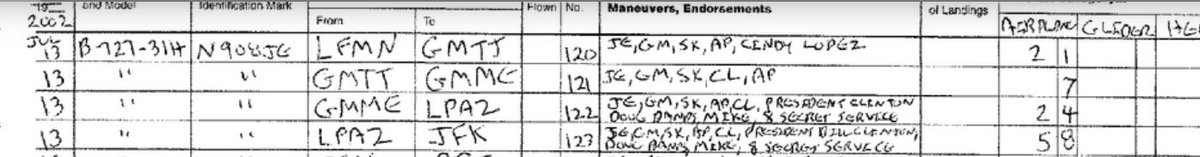 19 and Model Identification Mark Flown No. Maneuvers, Endorsements of Landings
2002 From To AIRPLANE GLIDER HE
JUL 13 B-727-31H N908JE LFMN GMTT 120 JE, GM, SK, AP, CINDY LOPEZ 2 1
13 " " GMTT GMME 121 JE, GM, SK, CL, AP 7
13 " " GMME LPAZ 122 JE, GM, SK, AP, CL, PRESIDENT CLINTON
DOUG BANDS, MIKE, 8 SECRET SERVICE 2 4
13 " " LPAZ JFK 123 JE, GM, SK, AP, CL, PRESIDENT BILL CLINTON,
DOUG BANDS, MIKE, 8 SECRET SERVICE 5 8